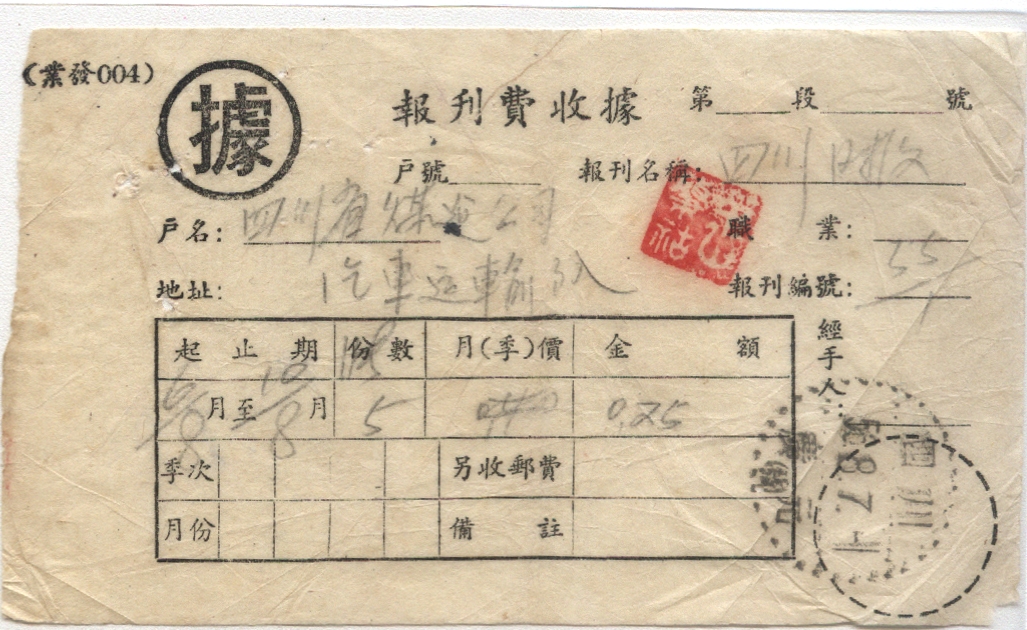 (業發004)
據
報刊費收據
第____段____號
戶號____ 報刊名稱:四川日报
戶名:四川省煤建公司
職業:
地址:汽車运輸队
報刊編號:55/1
起止期 份數 月(季)價 金額
月至 月 5 0.75
季次 另收郵費
月份 備註
經手人:
四川
8.7.